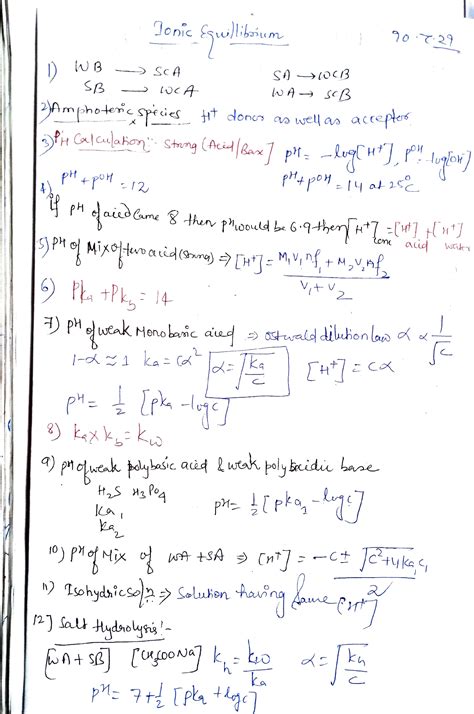 Ionic Equillibrium
1) WB → SCA SA → WCB
SB → WCA WA → SCB
2) Amphoteric species H⁺ donor as well as acceptor
3) PH Calculation:- Strong (Acid/Base] pH = -log[H⁺], pOH = -log[OH]
4) pH + pOH = 12 pH + pOH = 14 at 25°C
If pH of acid came 8 then pH would be 6.9 then [H⁺] = [H⁺] + [H⁺]
conc acid water
5) pH of Mix of two acid (strong) ⇒ [H⁺] = M₁V₁nf₁ + M₂V₂nf₂
V₁ + V₂
6) Pka + Pkb = 14
7) pH of weak Monobasic acid ⇒ ostwald dilution law α ∝ 1/√C
1-α ≈ 1 ka = Cα² α = √ka/C [H⁺] = Cα
pH = 1/2 [pka - logc]
8) ka x kb = kw
9) pH of weak polybasic acid & weak polyacidic base
H₂S H₃PO₄
ka₁ pH = 1/2 [pka₁ - logc]
ka₂
10) pH of Mix of WA + SA ⇒ [H⁺] = -C ± √C² + 4ka₁C₁
2
11) Isohydric sol/n ⇒ Solution having same [H⁺]
12] Salt Hydrolysis:-
[WA + SB] [CH₃COONa] kh = kw/ka α = √kh/C
pH = 7 + 1/2 [pka + logc]